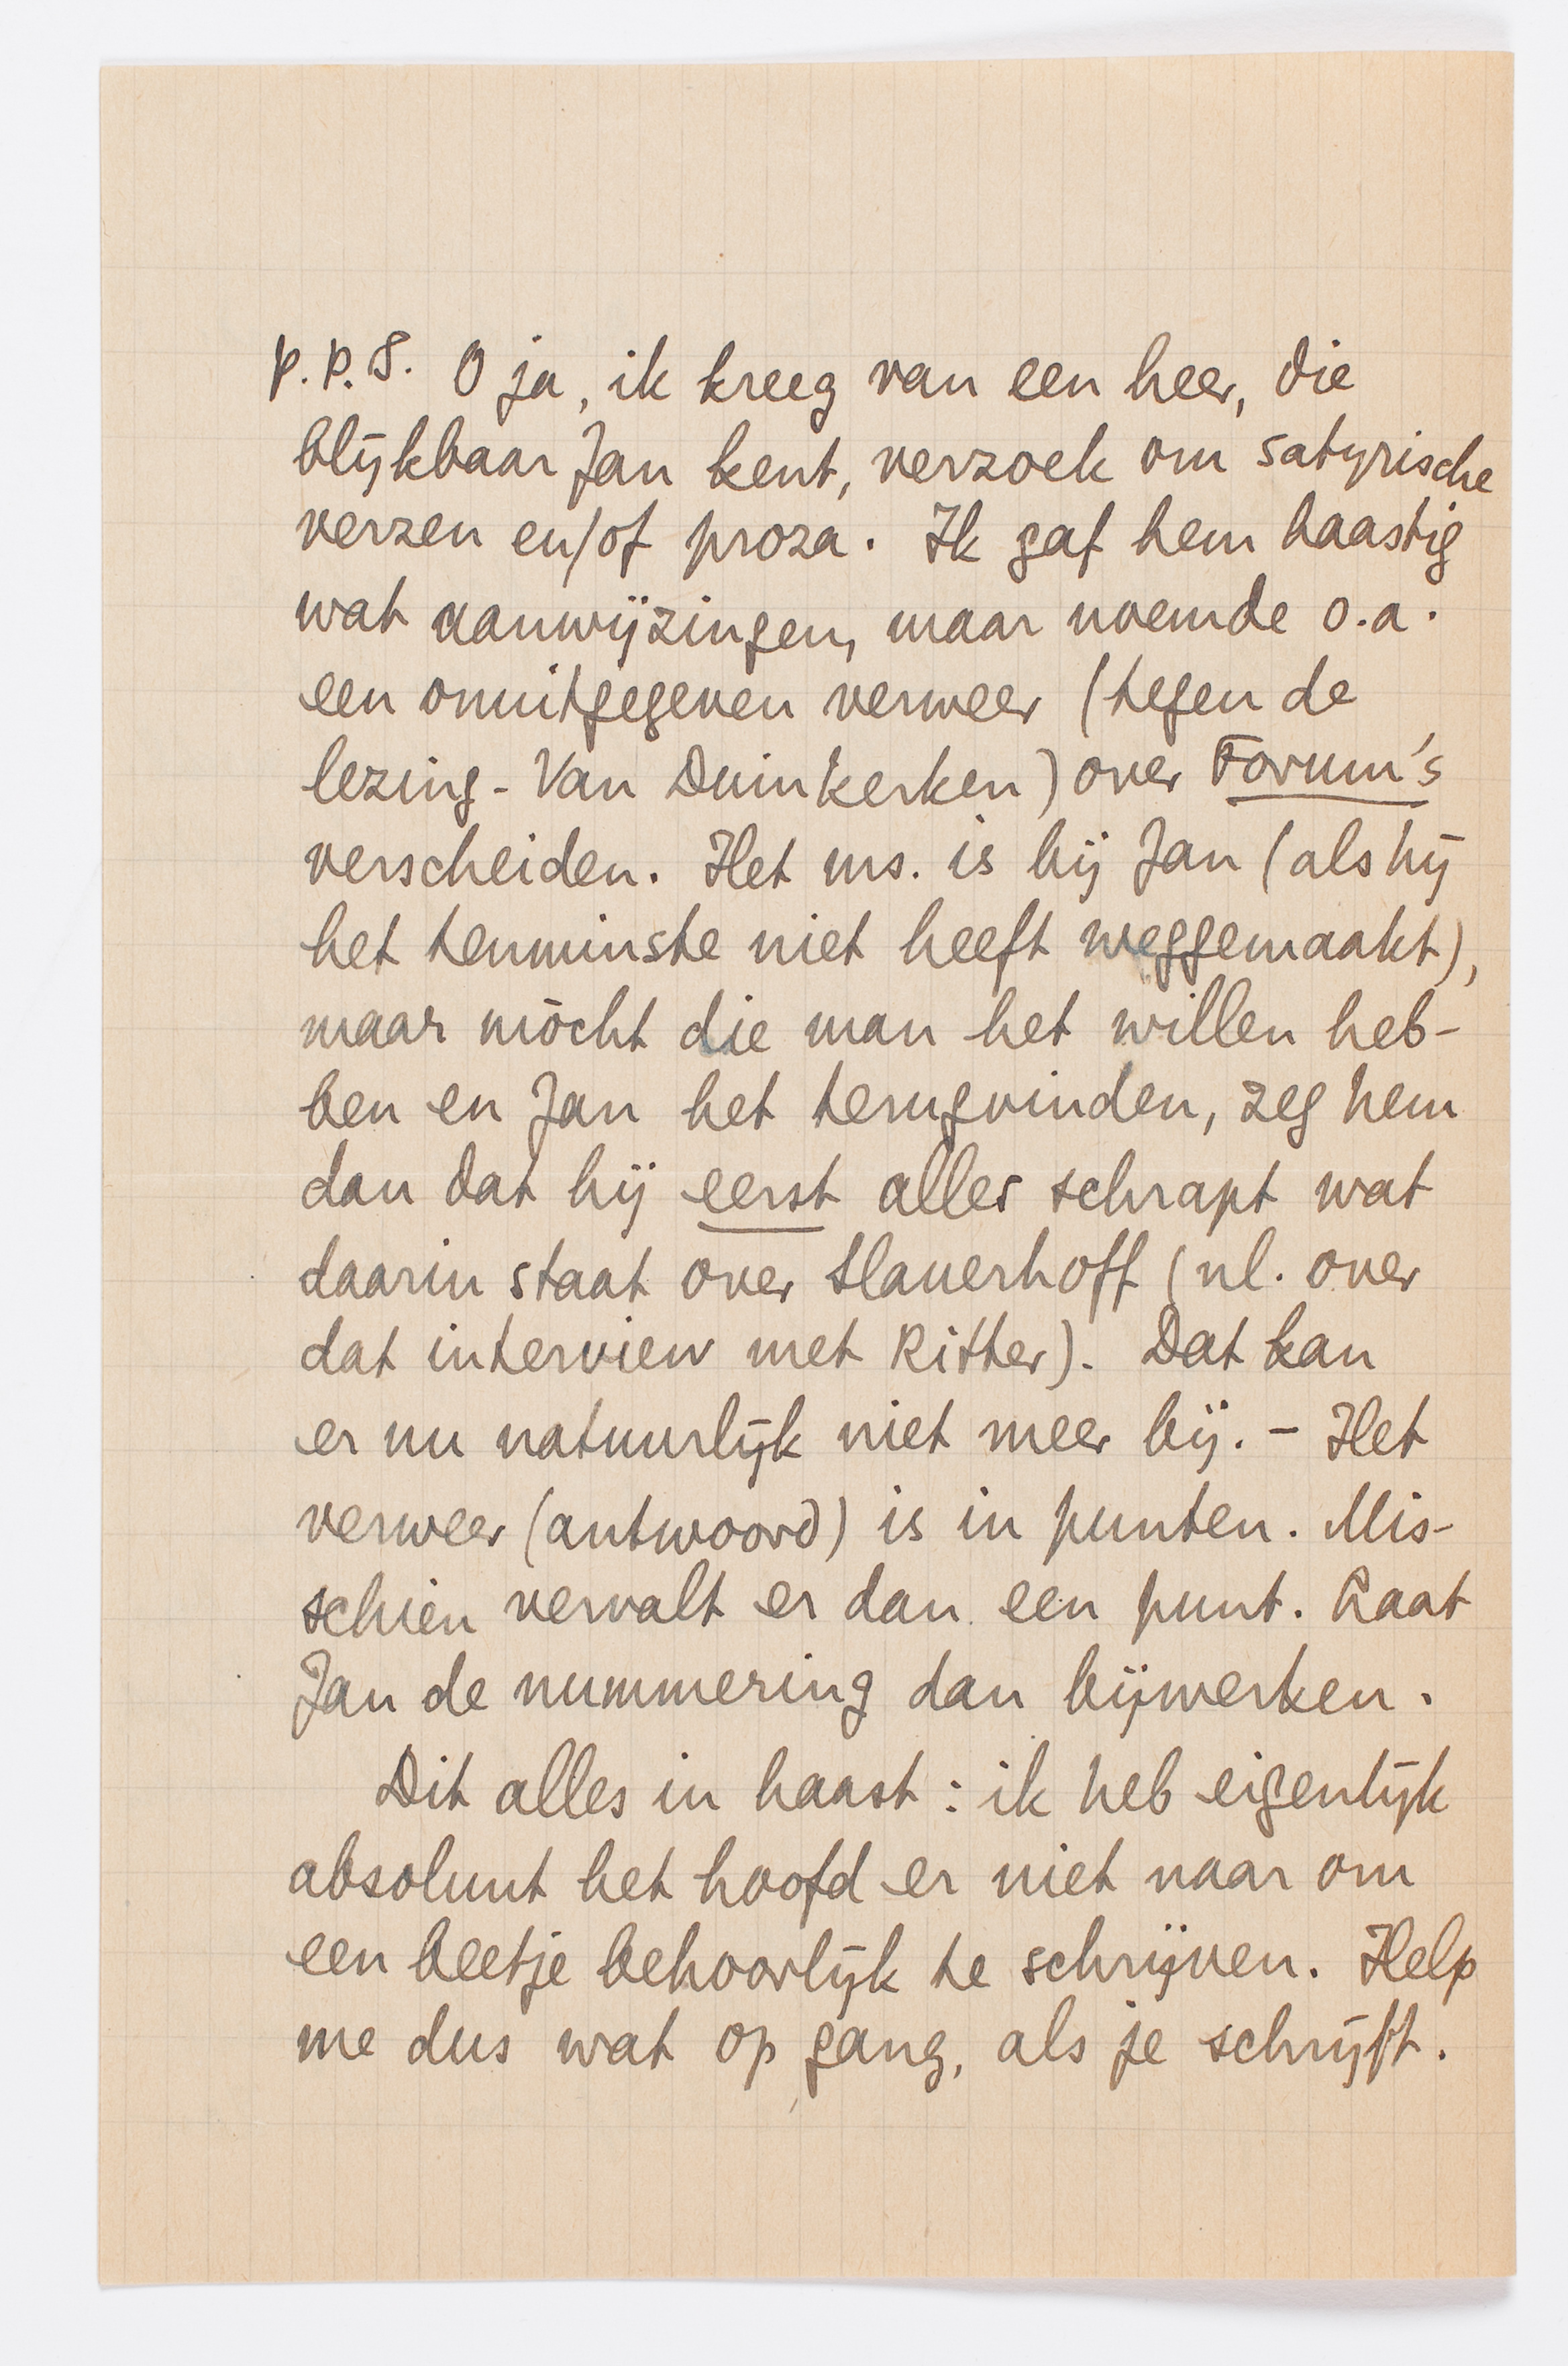 P.P.S. O ja, ik kreeg van een heer, die
blijkbaar Jan kent, verzoek om satyrische
verzen en/of proza. Ik gaf hem haastig
wat aanwijzingen, maar noemde o.a.
een onuitgegeven verweer (tegen de
lezing-Van Duinkerken) over Forum's
verscheiden. Het ms. is bij Jan (als hij
het tenminste niet heeft weggemaakt),
maar mòcht die man het willen heb-
ben en Jan het terugvinden, zeg hem
dan dat hij eerst alles schrapt wat
daarin staat over Slauerhoff (nl. over
dat interview met Ritter). Dat kan
er nu natuurlijk niet meer bij. – Het
verweer (antwoord) is in punten. Mis-
schien vervalt er dan een punt. Laat
Jan de nummering dan bijwerken.
Dit alles in haast: ik heb eigenlijk
absoluut het hoofd er niet naar om
een beetje behoorlijk te schrijven. Help
me dus wat op gang, als je schrijft.